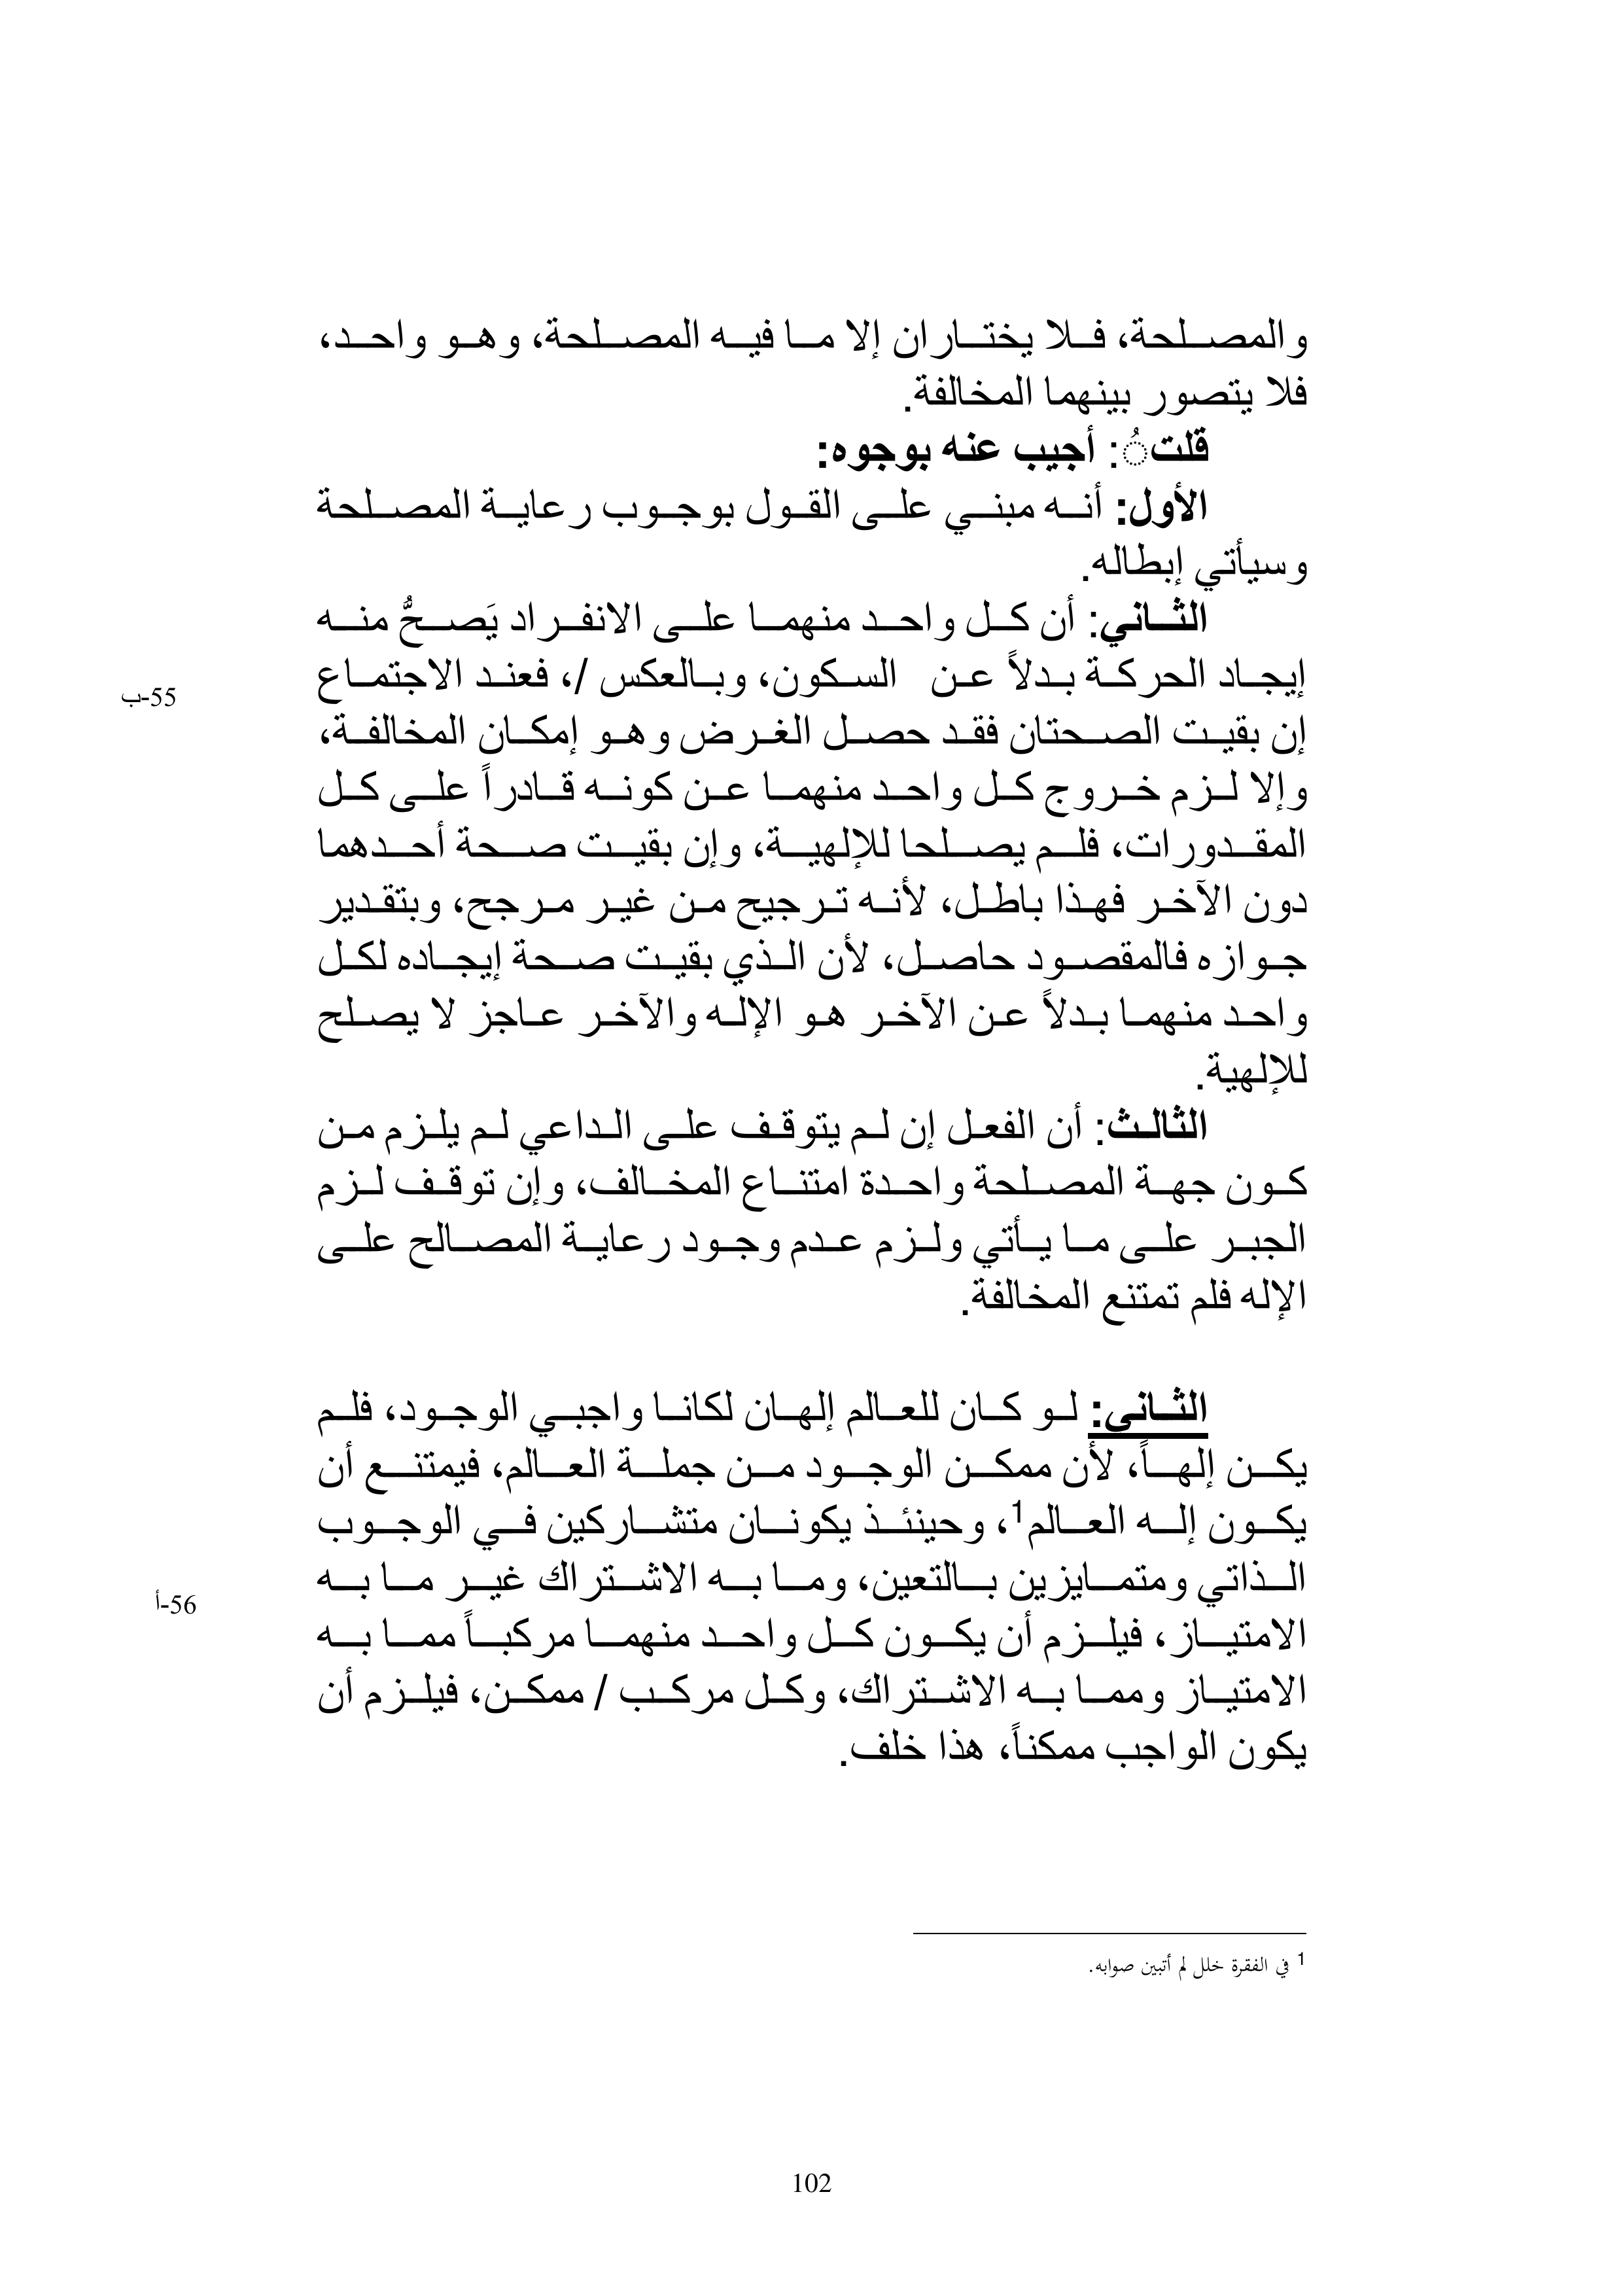 والمصلحة، فلا يختاران إلا ما فيه المصلحة، وهو واحد،
فلا يتصور بينهما المخالفة.
قلتُ: أجيب عنه بوجوه:
الأول: أنه مبني على القول بوجوب رعاية المصلحة
وسيأتي إبطاله.
الثاني: أن كل واحد منهما على الانفراد يَصحُّ منه
إيجاد الحركة بدلاً عن السكون، وبالعكس /، فعند الاجتماع
55-ب
إن بقيت الصحتان فقد حصل الغرض وهو إمكان المخالفة،
وإلا لزم خروج كل واحد منهما عن كونه قادراً على كل
المقدورات، فلم يصلحا للإلهية، وإن بقيت صحة أحدهما
دون الآخر فهذا باطل، لأنه ترجيح من غير مرجح، وبتقدير
جوازه فالمقصود حاصل، لأن الذي بقيت صحة إيجاده لكل
واحد منهما بدلاً عن الآخر هو الإله والآخر عاجز لا يصلح
للإلهية.
الثالث: أن الفعل إن لم يتوقف على الداعي لم يلزم من
كون جهة المصلحة واحدة امتناع المخالف، وإن توقف لزم
الجبر على ما يأتي ولزم عدم وجود رعاية المصالح على
الإله فلم تمتنع المخالفة.
الثاني: لو كان للعالم إلهان لكانا واجبي الوجود، فلم
يكن إلهاً، لأن ممكن الوجود من جملة العالم، فيمتنع أن
يكون إله العالم1، وحينئذ يكونان متشاركين في الوجوب
الذاتي ومتمايزين بالتعين، وما به الاشتراك غير ما به
56-أ
الامتياز، فيلزم أن يكون كل واحد منهما مركباً مما به
الامتياز ومما به الاشتراك، وكل مركب / ممكن، فيلزم أن
يكون الواجب ممكناً، هذا خلف.
1 في الفقرة خلل لم أتبين صوابه.
102